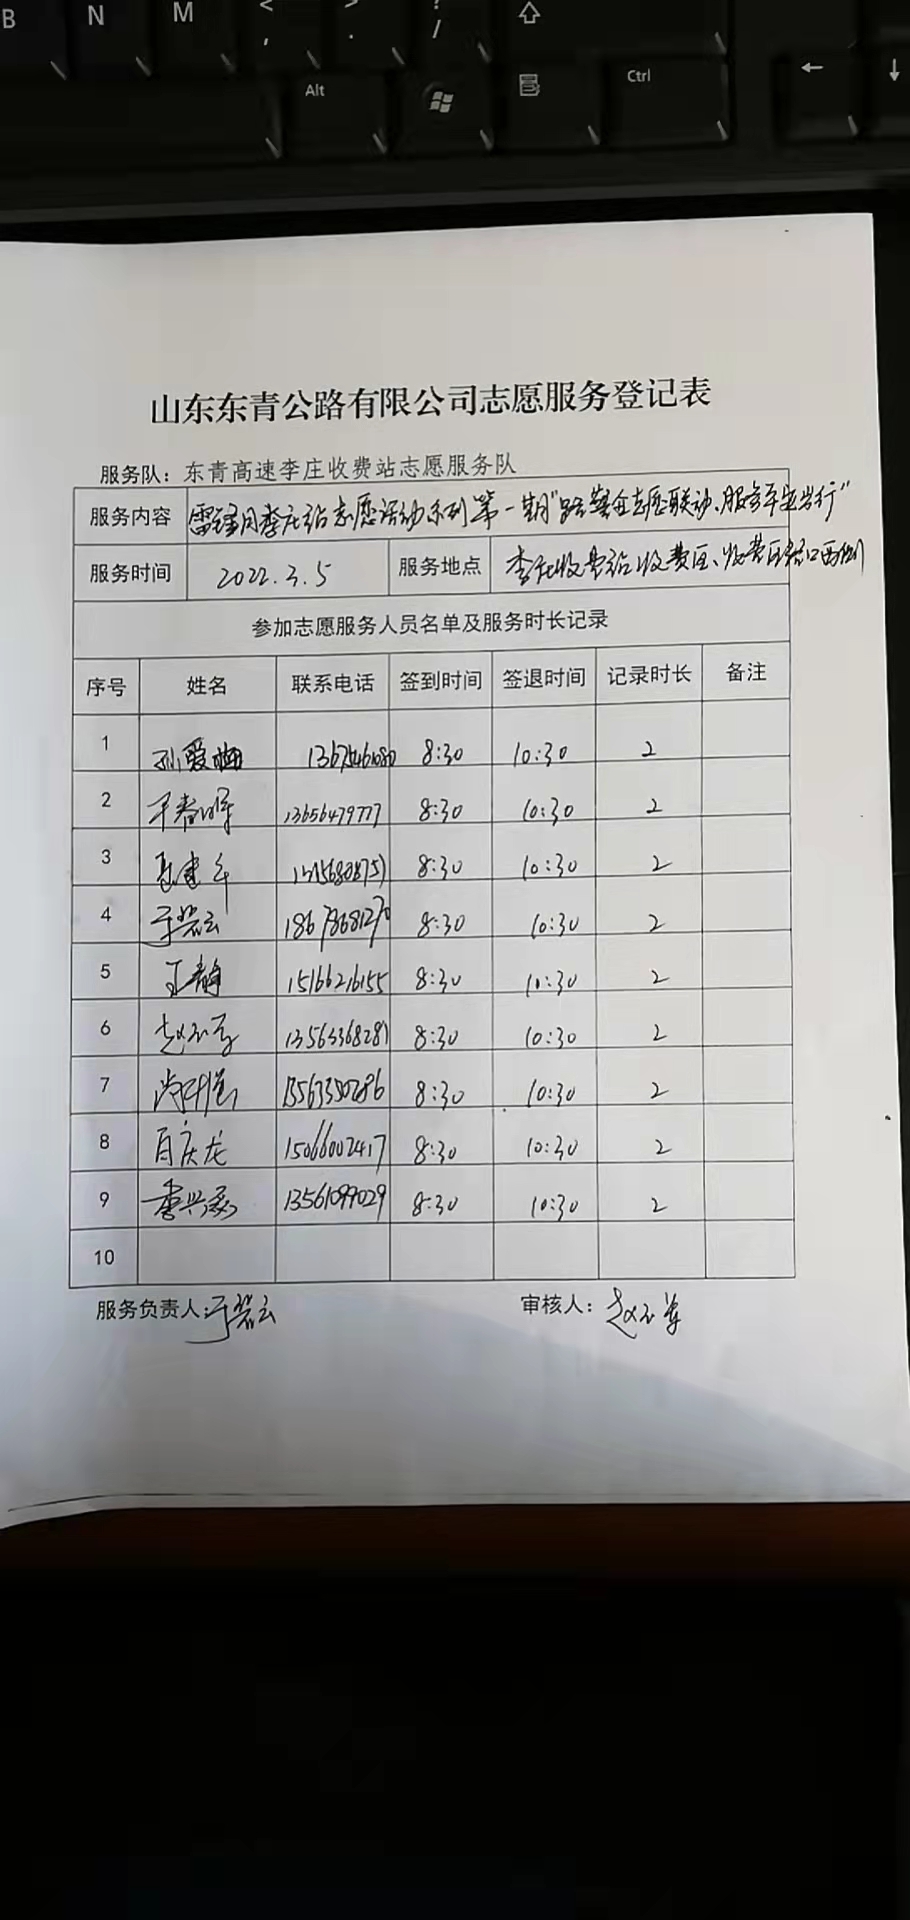 B N M < , > . ? /
Alt Ctrl
山东东青公路有限公司志愿服务登记表
服务队：东青高速李庄收费站志愿服务队
服务内容 雷锋月李庄站志愿活动系列第一期"路警企志愿联动、服务平安出行"
服务时间 2022.3.5 服务地点 李庄收费站收费区、收费区路口两侧
参加志愿服务人员名单及服务时长记录
序号 姓名 联系电话 签到时间 签退时间 记录时长 备注
1 孙爱 8:30 10:30 2
2 13656479777 8:30 10:30 2
3 8:30 10:30 2
4 于碧云 8:30 10:30 2
5 王静 15166216155 8:30 10:30 2
6 13563368281 8:30 10:30 2
7 13563350286 8:30 10:30 2
8 百庆龙 15066002417 8:30 10:30 2
9 13561099029 8:30 10:30 2
10
服务负责人：于碧云 审核人：